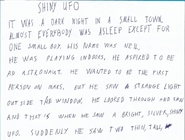 SHINY UFO
IT WAS A DARK NIGHT IN A SMALL TOWN,
ALMOST EVERYBODY WAS ASLEEP EXCEPT FOR
ONE SMALL BOY. HIS NAME WAS
HE WAS PLAYING INDOORS, HE ASPIRED TO BE
AN ASTRONAUT. HE WANTED TO BE THE FIRST
PERSON ON MARS. BUT HE SAW A STRANGE LIGHT
OUTSIDE THE WINDOW. HE LOOKED THROUGH AND SAW
AND THAT'S WHEN HE SAW A BRIGHT, SILVER, SHINY
UFO. SUDDENLY HE SAW TWO THIN, TALL